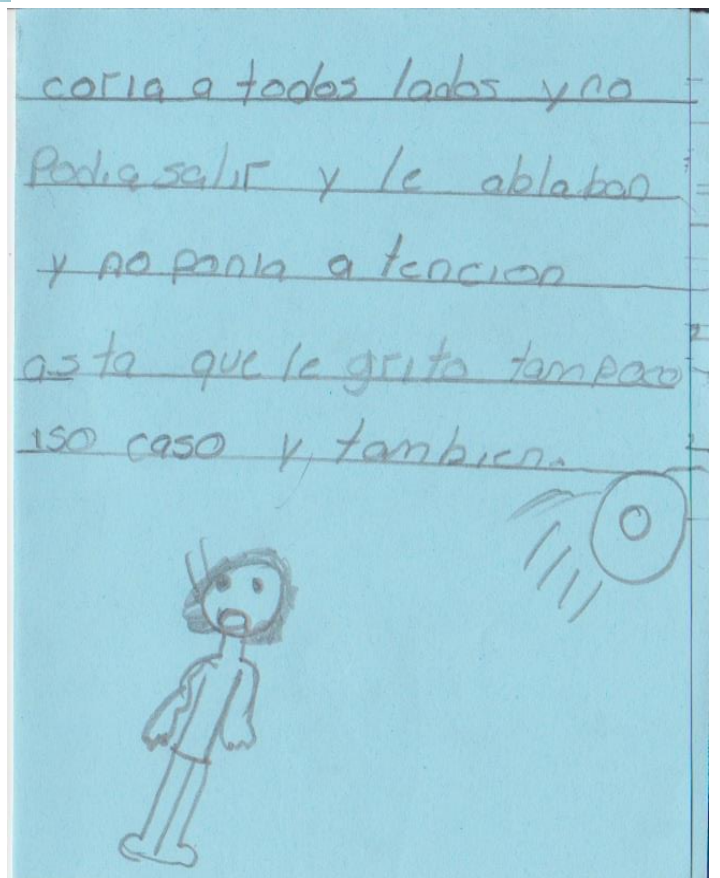 coria a todos lados y no
Podia salir y le ablaban
y no ponia a tencion
as ta que le grito tampoco
iso caso y tambien.